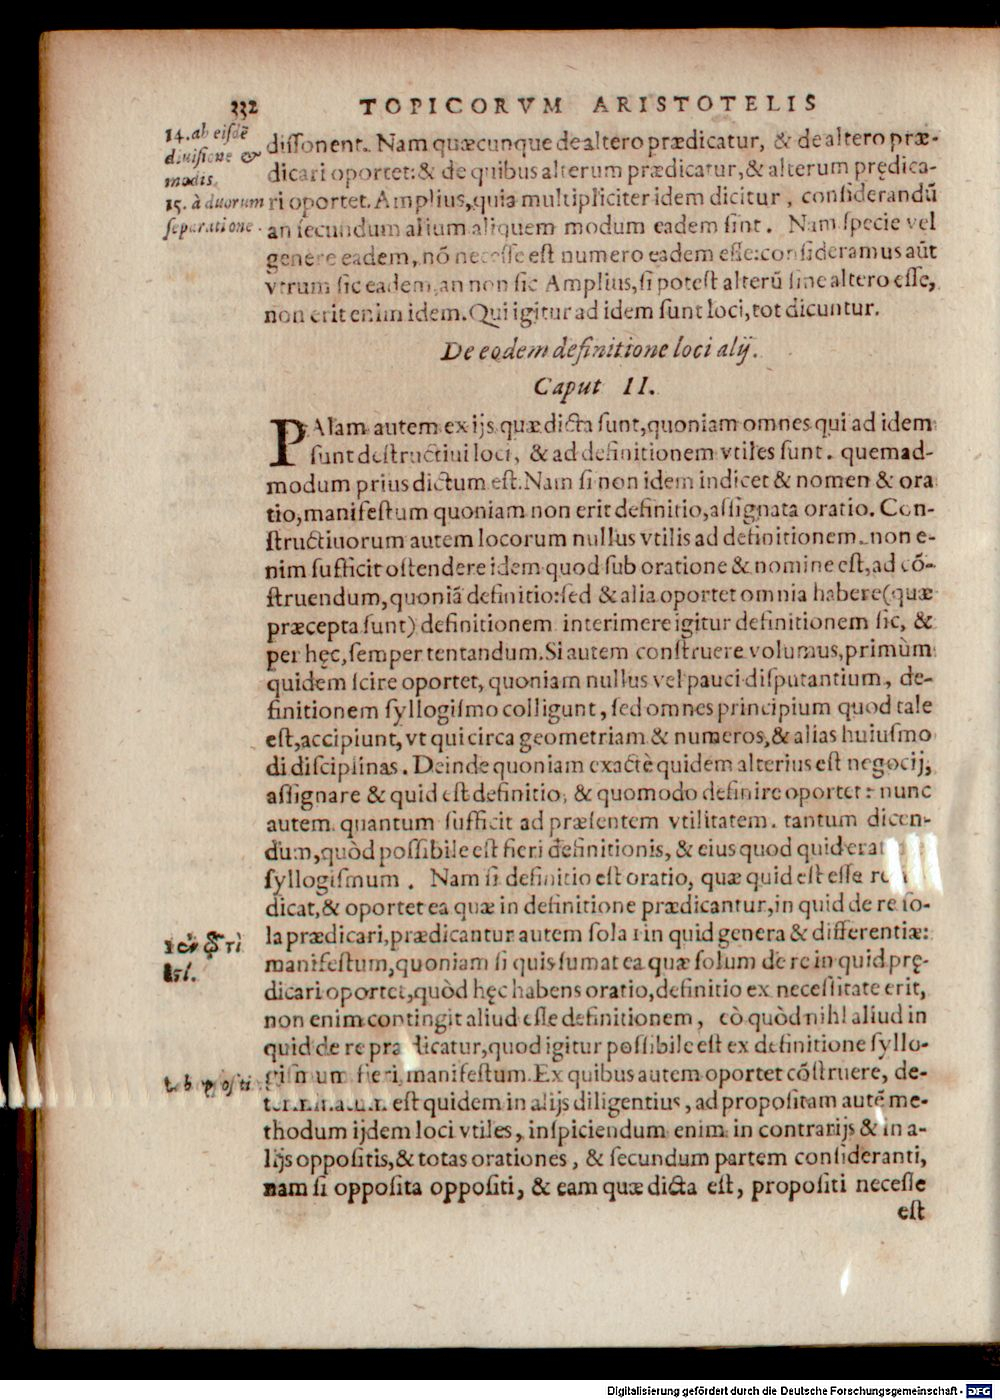 332 TOPICORVM ARISTOTELIS
14. ab eisdē
diuisione &
modis.
15. à duorum
separatione.
dissonent. Nam quæcunque de altero prædicatur, & de altero præ-
dicari oportet: & de quibus alterum prædicatur, & alterum prędica-
ri oportet. Amplius, quia multipliciter idem dicitur, considerandū
an secundum alium aliquem modum eadem sint. Nam specie vel
genere eadem, nō necesse est numero eadem esse: consideramus aūt
vtrum sic eadem, an non sic Amplius, si potest alterū sine altero esse,
non erit enim idem. Qui igitur ad idem sunt loci, tot dicuntur.
De eodem definitione loci alij.
Caput II.
PAlam autem ex ijs quæ dicta sunt, quoniam omnes qui ad idem
sunt destructiui loci, & ad definitionem vtiles sunt. quemad-
modum prius dictum est. Nam si non idem indicet & nomen & ora
tio, manifestum quoniam non erit definitio, assignata oratio. Con-
structiuorum autem locorum nullus vtilis ad definitionem. non e-
nim sufficit ostendere idem quod sub oratione & nomine est, ad cō-
struendum, quoniā definitio: sed & alia oportet omnia habere (quæ
præcepta sunt) definitionem interimere igitur definitionem sic, &
per hęc, semper tentandum. Si autem construere volumus, primùm
quidem scire oportet, quoniam nullus vel pauci disputantium, de-
finitionem syllogismo colligunt, sed omnes principium quod tale
est, accipiunt, vt qui circa geometriam & numeros, & alias huiusmo
di disciplinas. Deinde quoniam exactè quidem alterius est negocij,
assignare & quid est definitio, & quomodo definire oportet: nunc
autem quantum sufficit ad præsentem vtilitatem. tantum dicen-
dum, quòd possibile est fieri definitionis, & eius quod quid erat
syllogismum. Nam si definitio est oratio, quæ quid est esse
dicat, & oportet ea quæ in definitione prædicantur, in quid de re so-
la prædicari, prædicantur autem sola in quid genera & differentiæ:
manifestum, quoniam si quis sumat ea quæ solum de re in quid prę-
dicari oportet, quòd hęc habens oratio, definitio ex necessitate erit,
non enim contingit aliud esse definitionem, eò quòd nihl aliud in
quid de re prædicatur, quod igitur possibile est ex definitione syllo-
gismum fieri, manifestum. Ex quibus autem oportet cōstruere, de-
terminatum est quidem in alijs diligentius, ad propositam autē me-
thodum ijdem loci vtiles, inspiciendum enim in contrarijs & in a-
lijs oppositis, & totas orationes, & secundum partem consideranti,
nam si opposita oppositi, & eam quæ dicta est, propositi necesse
est
Digitalisierung gefördert durch die Deutsche Forschungsgemeinschaft - DFG